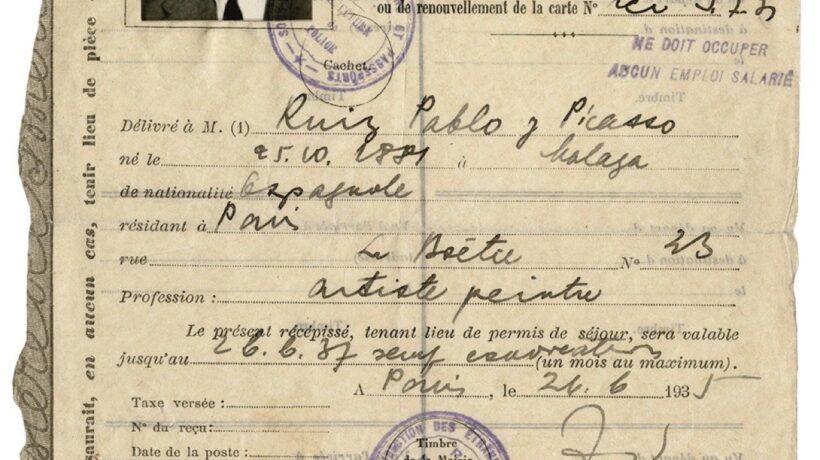 ou de renouvellement de la carte N°
NE DOIT OCCUPER
AUCUN EMPLOI SALARIÉ
ET PASSEPORTS
Cachet.
Timbre.
Délivré à M. (1) Ruiz Pablo y Picasso
né le 25.10.1881 à Malaga
de nationalité Espagnole
résidant à Paris
rue La Boétie N° 23
Profession : artiste peintre
Le présent récépissé, tenant lieu de permis de séjour, sera valable
jusqu'au 26.6.37 sauf (un mois au maximum).
A Paris, le 26.6 1935
Taxe versée :
N° du reçu :
Date de la poste :
Timbre
de la Mairie
saurait, en aucun cas, tenir lieu de pièce